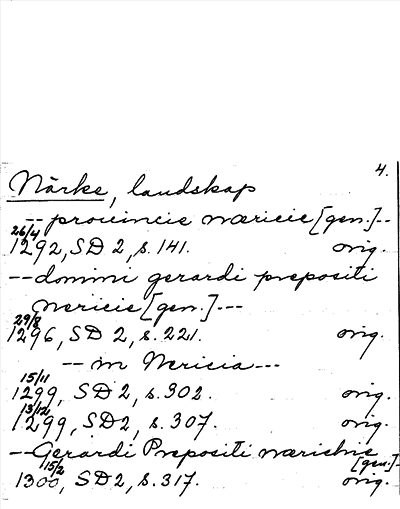 4.
Närke, landskap
-- prouincie næricie [gen.] --
26/4
1292, SD 2, s. 141. orig.
-- domini gerardi prepositi
nericie [gen.] ---
29/8
1296, SD 2, s. 221. orig.
-- in Nericia ---
15/11
1299, SD 2, s. 302. orig.
13/12
1299, SD 2, s. 307. orig.
-- Gerardi Prepositi
[gen.] -
15/2
1300, SD 2, s. 317. orig.